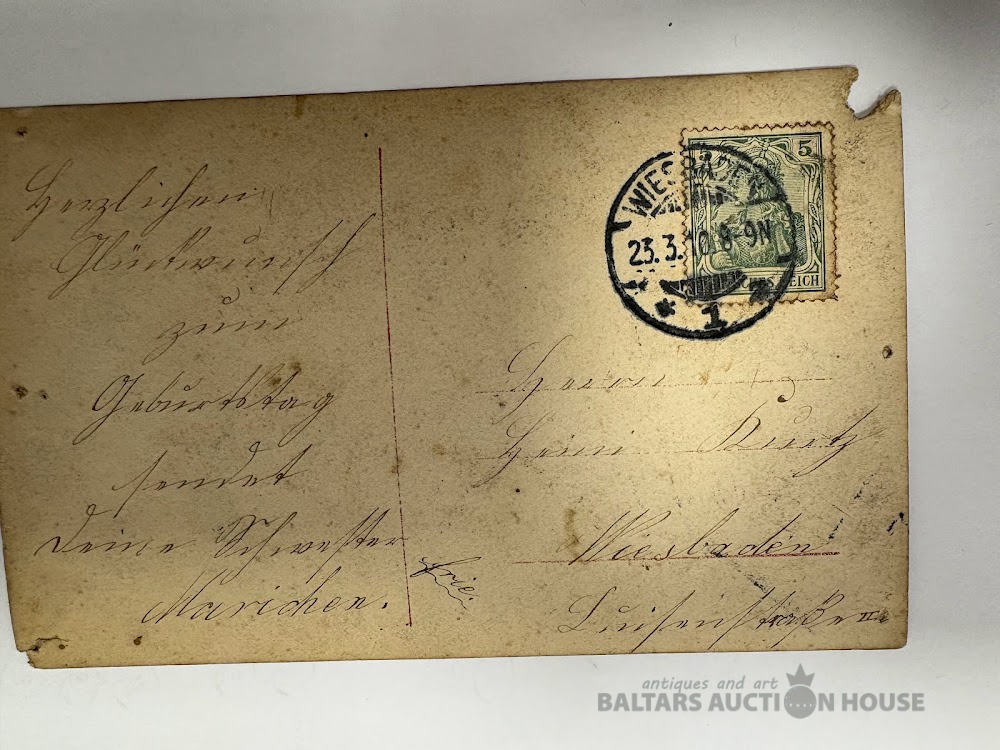 Herzlichen
Glückwunsch
zum
Geburtstag
sendet
Deine Schwester
Marichen.
WIESBADEN
23.3.10.8-9N
* 1 *
5
REICH
Herrn
Wiesbaden
Luisenstraße II
antiques and art
BALTARS AUCTION HOUSE